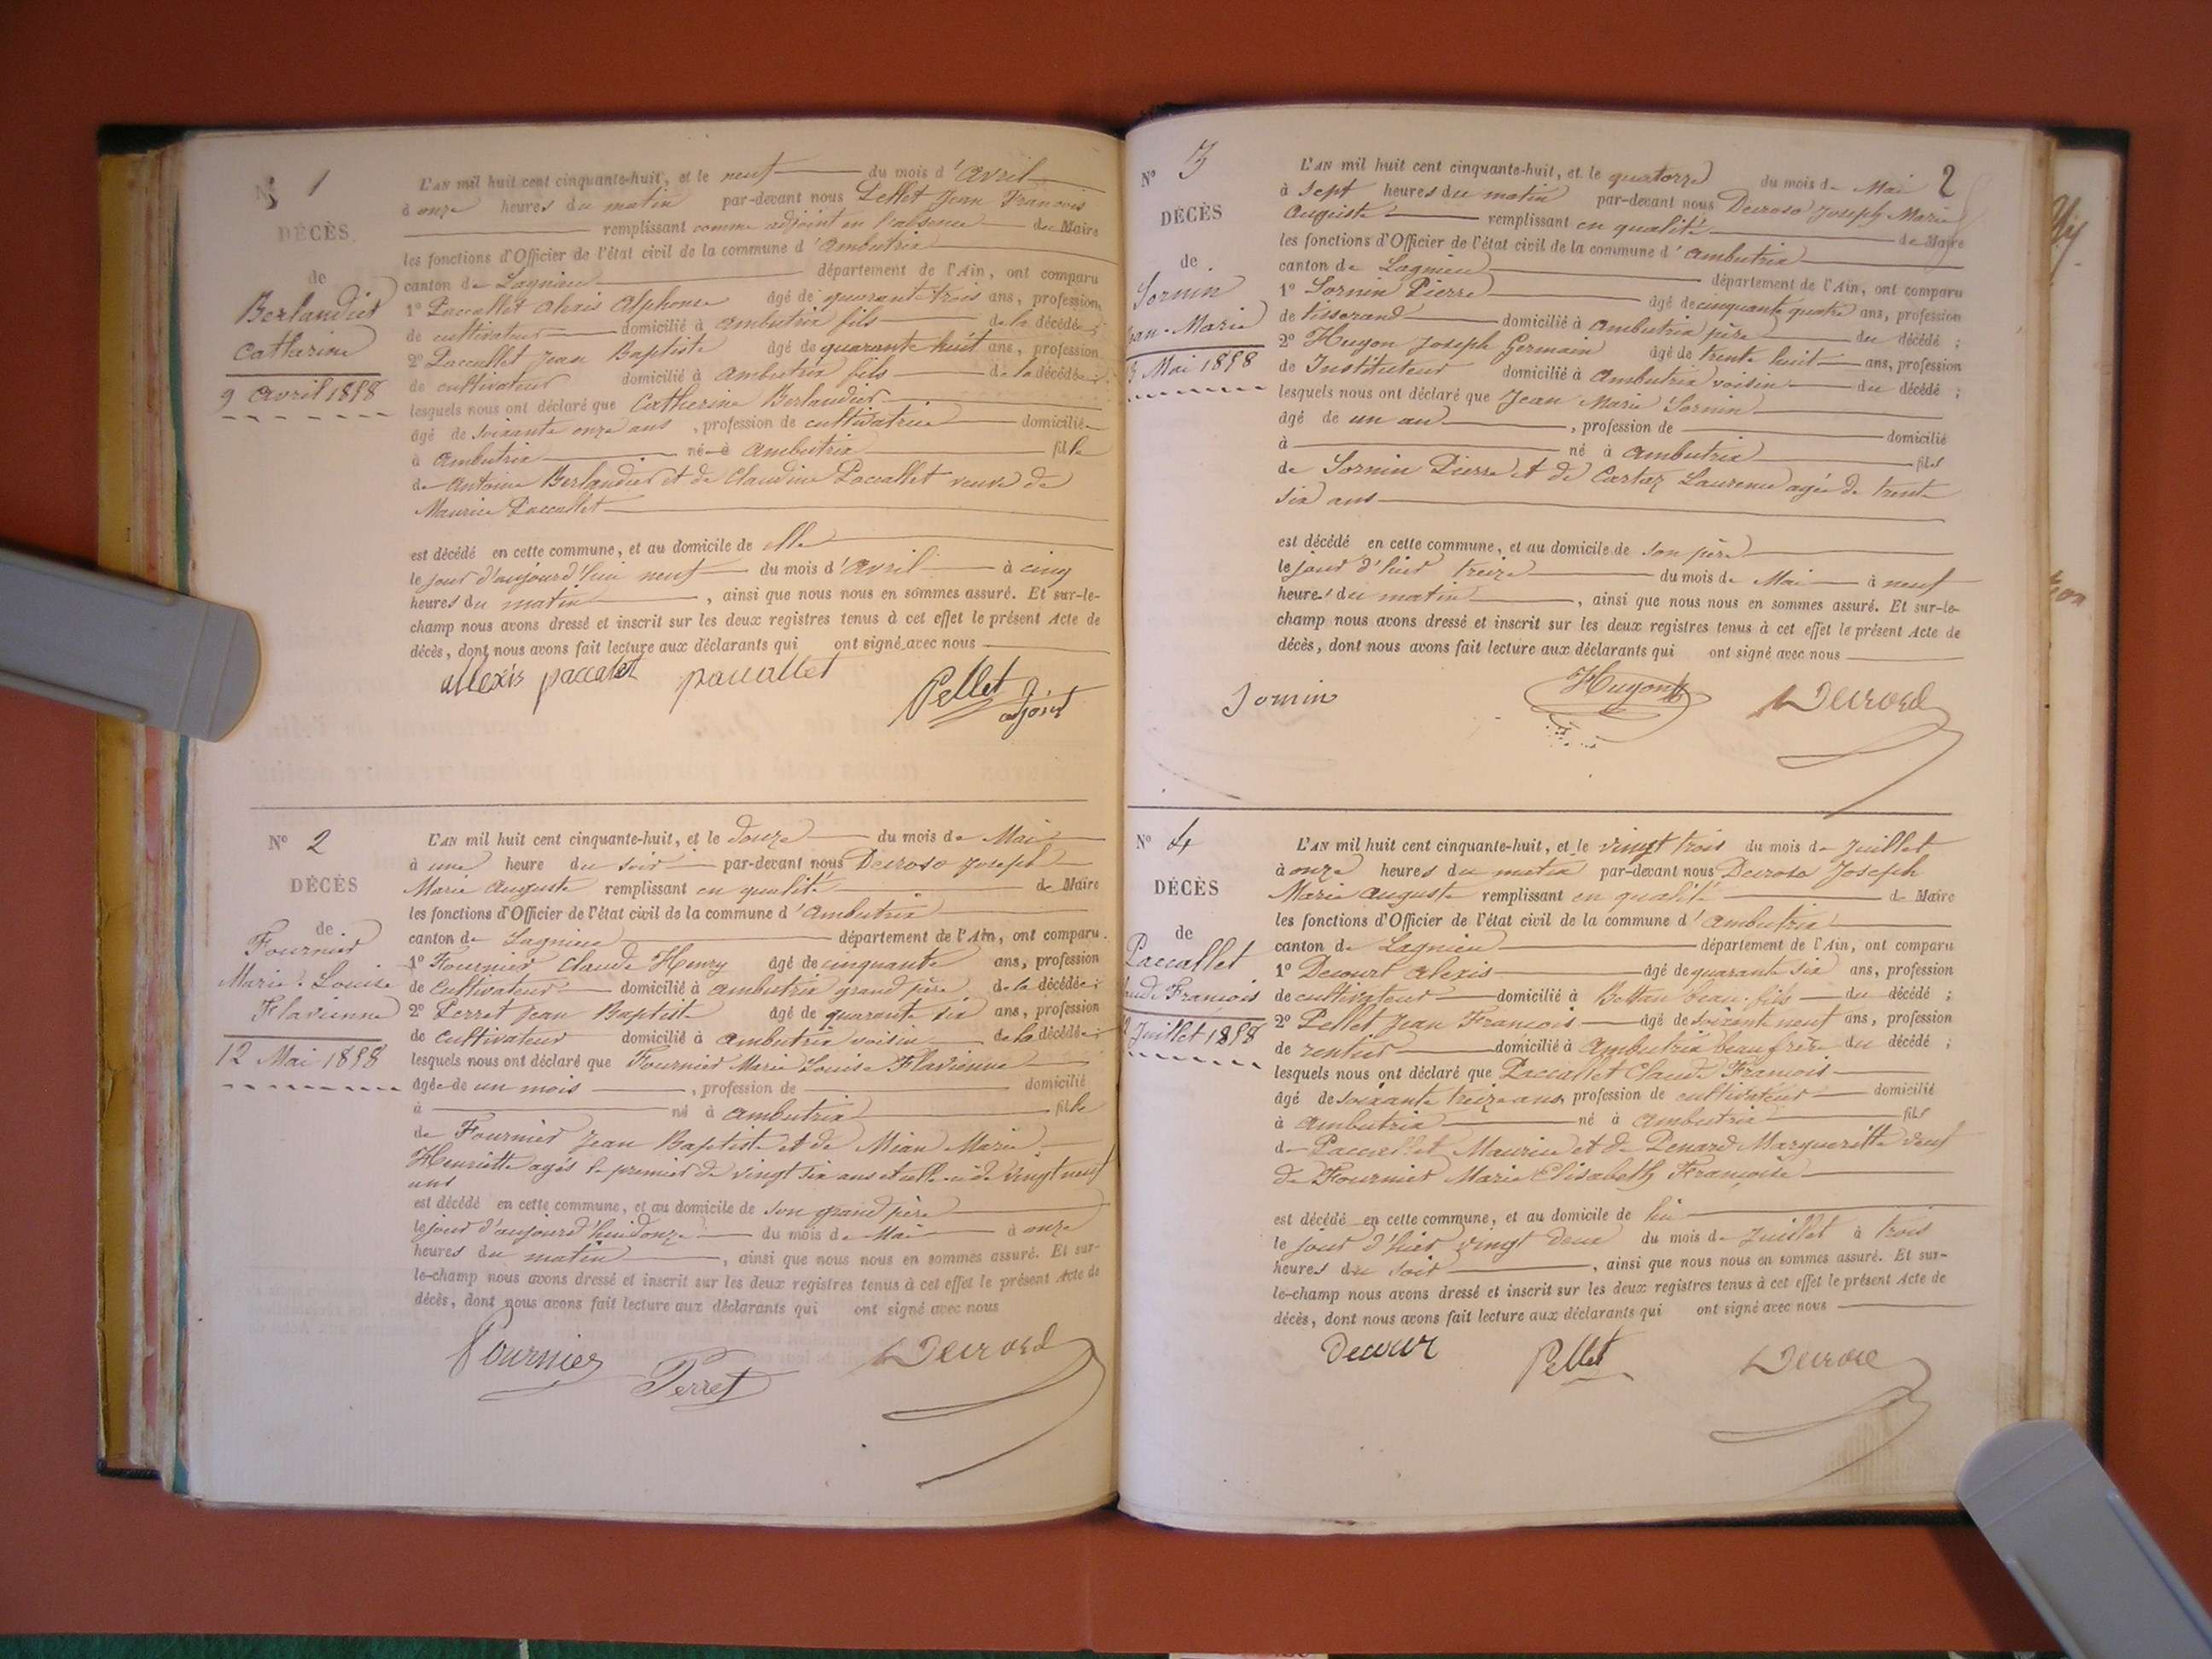 N° 1
DÉCÈS
de
Berlandier
Catherine
9 avril 1858
L'AN mil huit cent cinquante-huit, et le neuf du mois d'avril
à onze heures du matin par-devant nous Pellet Jean François
remplissant comme adjoint en l'absence du Maire
les fonctions d'Officier de l'état civil de la commune d'ambutrix
canton de Lagnieu département de l'Ain, ont comparu
1° Paccallet Alexis Alphonse âgé de quarante trois ans, profession
de cultivateur domicilié à ambutrix fils de la décédée ;
2° Paccallet Jean Baptiste âgé de quarante huit ans, profession
de cultivateur domicilié à ambutrix fils de la décédée ;
lesquels nous ont déclaré que Catherine Berlandier
âgé de soixante onze ans, profession de cultivatrice domicilié
à ambutrix né à ambutrix fille
de Antoine Berlandier et de Claudine Paccallet veuve de
Maurice Paccallet
est décédé en cette commune, et au domicile de elle
le jour d'aujourd'hui neuf du mois d'avril à cinq
heures du matin, ainsi que nous nous en sommes assuré. Et sur-le-
champ nous avons dressé et inscrit sur les deux registres tenus à cet effet le présent Acte de
décès, dont nous avons fait lecture aux déclarants qui ont signé avec nous
allexis paccalet paccallet Pellet adjoint
N° 2
DÉCÈS
de
Fournier
Marie-Louise
Flavienne
12 Mai 1858
L'AN mil huit cent cinquante-huit, et le douze du mois de Mai
à une heure du soir par-devant nous Decroso Joseph
Marie Auguste remplissant en qualité de Maire
les fonctions d'Officier de l'état civil de la commune d'ambutrix
canton de Lagnieu département de l'Ain, ont comparu
1° Fournier Claude Henry âgé de cinquante ans, profession
de cultivateur domicilié à ambutrix grand père de la décédée ;
2° Perret Jean Baptiste âgé de quarante six ans, profession
de cultivateur domicilié à ambutrix voisin de la décédée ;
lesquels nous ont déclaré que Fournier Marie Louise Flavienne
âgée de un mois, profession de domicilié
à né à ambutrix fille
de Fournier Jean Baptiste et de Mian Marie
Henriette agés le premier de vingt six ans et celle-ci de vingt neuf
ans
est décédé en cette commune, et au domicile de son grand père
le jour d'aujourd'hui douze du mois de Mai à onze
heures du matin, ainsi que nous nous en sommes assuré. Et sur-
le-champ nous avons dressé et inscrit sur les deux registres tenus à cet effet le présent Acte de
décès, dont nous avons fait lecture aux déclarants qui ont signé avec nous
Fournier Perret Decroso
2
N° 3
DÉCÈS
de
Sornin
Jean-Marie
13 Mai 1858
L'AN mil huit cent cinquante-huit, et le quatorze du mois de Mai
à sept heures du matin par-devant nous Decroso Joseph Marie
Auguste remplissant en qualité de Maire
les fonctions d'Officier de l'état civil de la commune d'ambutrix
canton de Lagnieu département de l'Ain, ont comparu
1° Sornin Pierre âgé de cinquante quatre ans, profession
de tisserand domicilié à ambutrix père du décédé ;
2° Hugon Joseph Germain âgé de trente huit ans, profession
de Instituteur domicilié à Ambutrix voisin du décédé ;
lesquels nous ont déclaré que Jean Marie Sornin
âgé de un an, profession de domicilié
à né à ambutrix fils
de Sornin Pierre et de Cartaz Laurence agée de trente
six ans
est décédé en cette commune, et au domicile de son père
le jour d'hier treize du mois de Mai à neuf
heures du matin, ainsi que nous nous en sommes assuré. Et sur-le-
champ nous avons dressé et inscrit sur les deux registres tenus à cet effet le présent Acte de
décès, dont nous avons fait lecture aux déclarants qui ont signé avec nous
Sornin Hugon Decroso
N° 4
DÉCÈS
de
Paccallet
aude François
2 Juillet 1858
L'AN mil huit cent cinquante-huit, et le vingt trois du mois de Juillet
à onze heures du matin par-devant nous Decroso Joseph
Marie Auguste remplissant en qualité de Maire
les fonctions d'Officier de l'état civil de la commune d'ambutrix
canton de Lagnieu département de l'Ain, ont comparu
1° Decourt Alexis âgé de quarante six ans, profession
de cultivateur domicilié à Bettan beau-fils du décédé ;
2° Pellet Jean François âgé de soixante neuf ans, profession
de rentier domicilié à ambutrix beau frère du décédé ;
lesquels nous ont déclaré que Paccallet Claude François
âgé de soixante treize ans, profession de cultivateur domicilié
à ambutrix né à ambutrix fils
de Paccallet Maurice et de Penard Margueritte veuf
de Fournier Marie Elisabeth Françoise
est décédé en cette commune, et au domicile de lui
le jour d'hier vingt deux du mois de Juillet à trois
heures du soir, ainsi que nous nous en sommes assuré. Et sur-
le-champ nous avons dressé et inscrit sur les deux registres tenus à cet effet le présent Acte de
décès, dont nous avons fait lecture aux déclarants qui ont signé avec nous
Decour Pellet Decroso